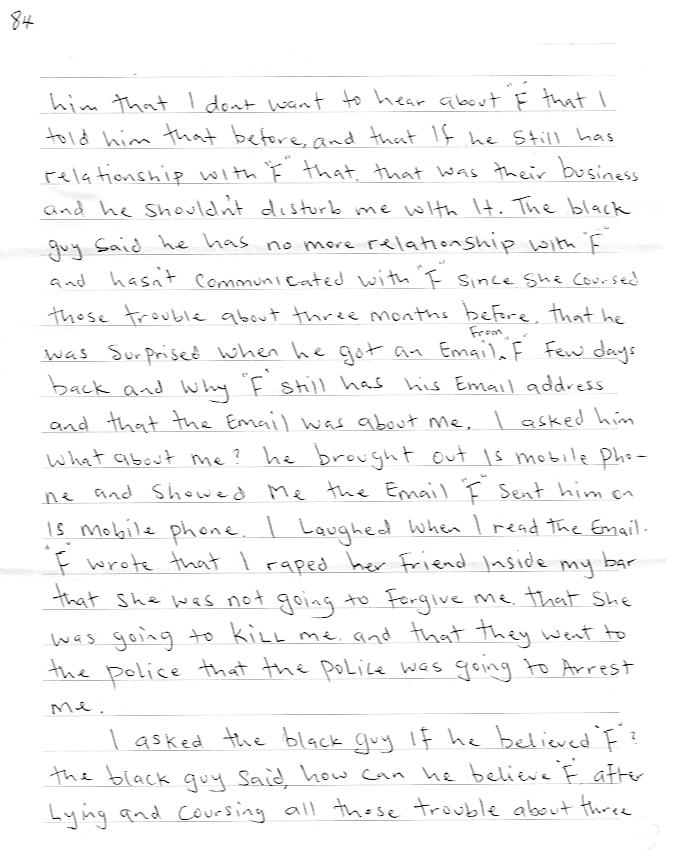 84
him that I dont want to hear about "F" that I
told him that before, and that If he Still has
relationship with "F" that. that was their business
and he shouldn't disturb me with It. The black
guy said he has no more relationship with "F"
and hasn't communicated with "F" since she coursed
those trouble about three months before. that he
was Surprised when he got an Email From "F" Few days
back and why "F" still has his Email address
and that the Email was about me. I asked him
what about me? he brought out Is mobile pho-
ne and showed me the Email "F" Sent him on
Is mobile phone. I Laughed when I read the Email.
"F" wrote that I raped her friend Inside my bar
that she was not going to Forgive me. that she
was going to KILL me. and that they went to
the police that the police was going to Arrest
me.
I asked the black guy If he believed "F"?
the black guy said, how can he believe "F" after
Lying and Coursing all those trouble about three